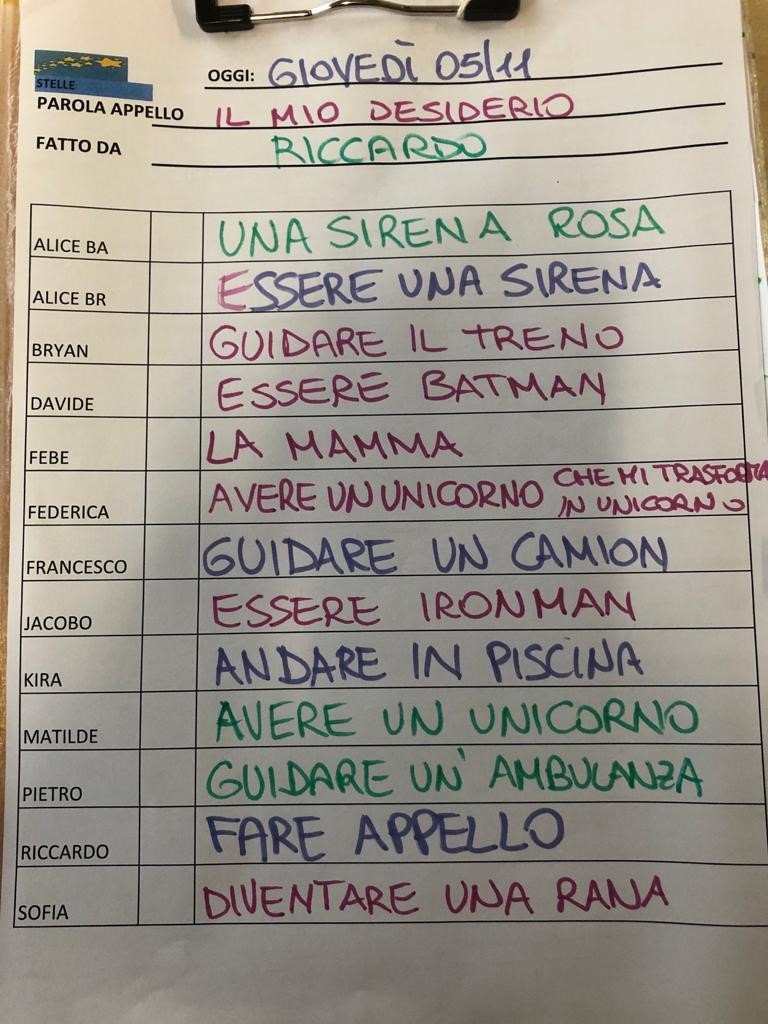 STELLE
OGGI: GIOVEDÌ 05/11
PAROLA APPELLO IL MIO DESIDERIO
FATTO DA RICCARDO
ALICE BA UNA SIRENA ROSA
ALICE BR ESSERE UNA SIRENA
BRYAN GUIDARE IL TRENO
DAVIDE ESSERE BATMAN
FEBE LA MAMMA
FEDERICA AVERE UN UNICORNO CHE MI TRASFORMA
IN UNICORNO
FRANCESCO GUIDARE UN CAMION
JACOBO ESSERE IRONMAN
KIRA ANDARE IN PISCINA
MATILDE AVERE UN UNICORNO
PIETRO GUIDARE UN' AMBULANZA
RICCARDO FARE APPELLO
SOFIA DIVENTARE UNA RANA